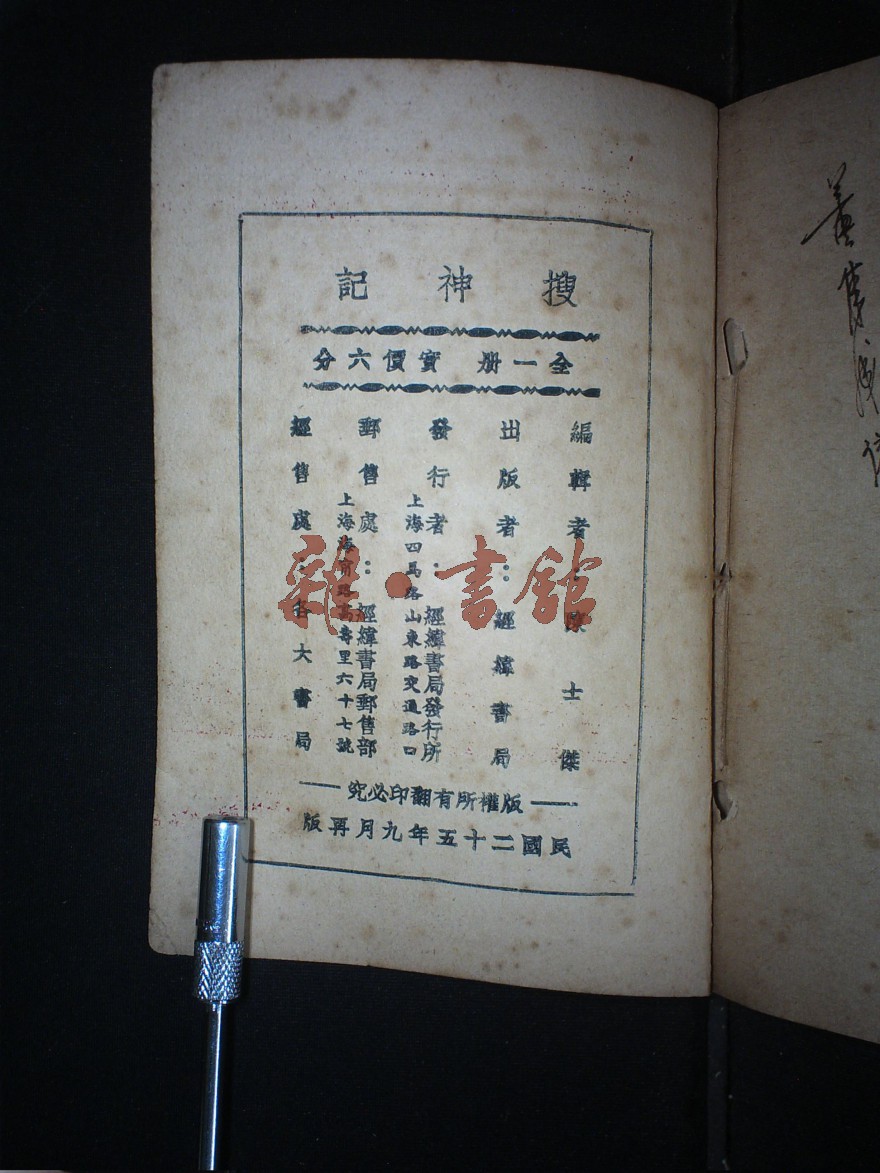 搜神記
全一册 實價六分
編輯者：陳士傑
出版者：經緯書局
發行者：經緯書局發行所
上海四馬路山東路交通路口
郵售處：經緯書局郵售部
上海海甯路高壽里六十七號
經售處：各大書局
版權所有翻印必究
民國二十五年九月再版
雜·書館